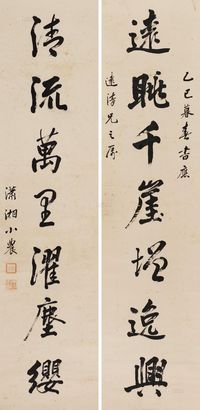 乙巳暮春書應
遠眺千崖增逸興
遠兄之屬
清流萬里濯塵纓
瀟湘小農